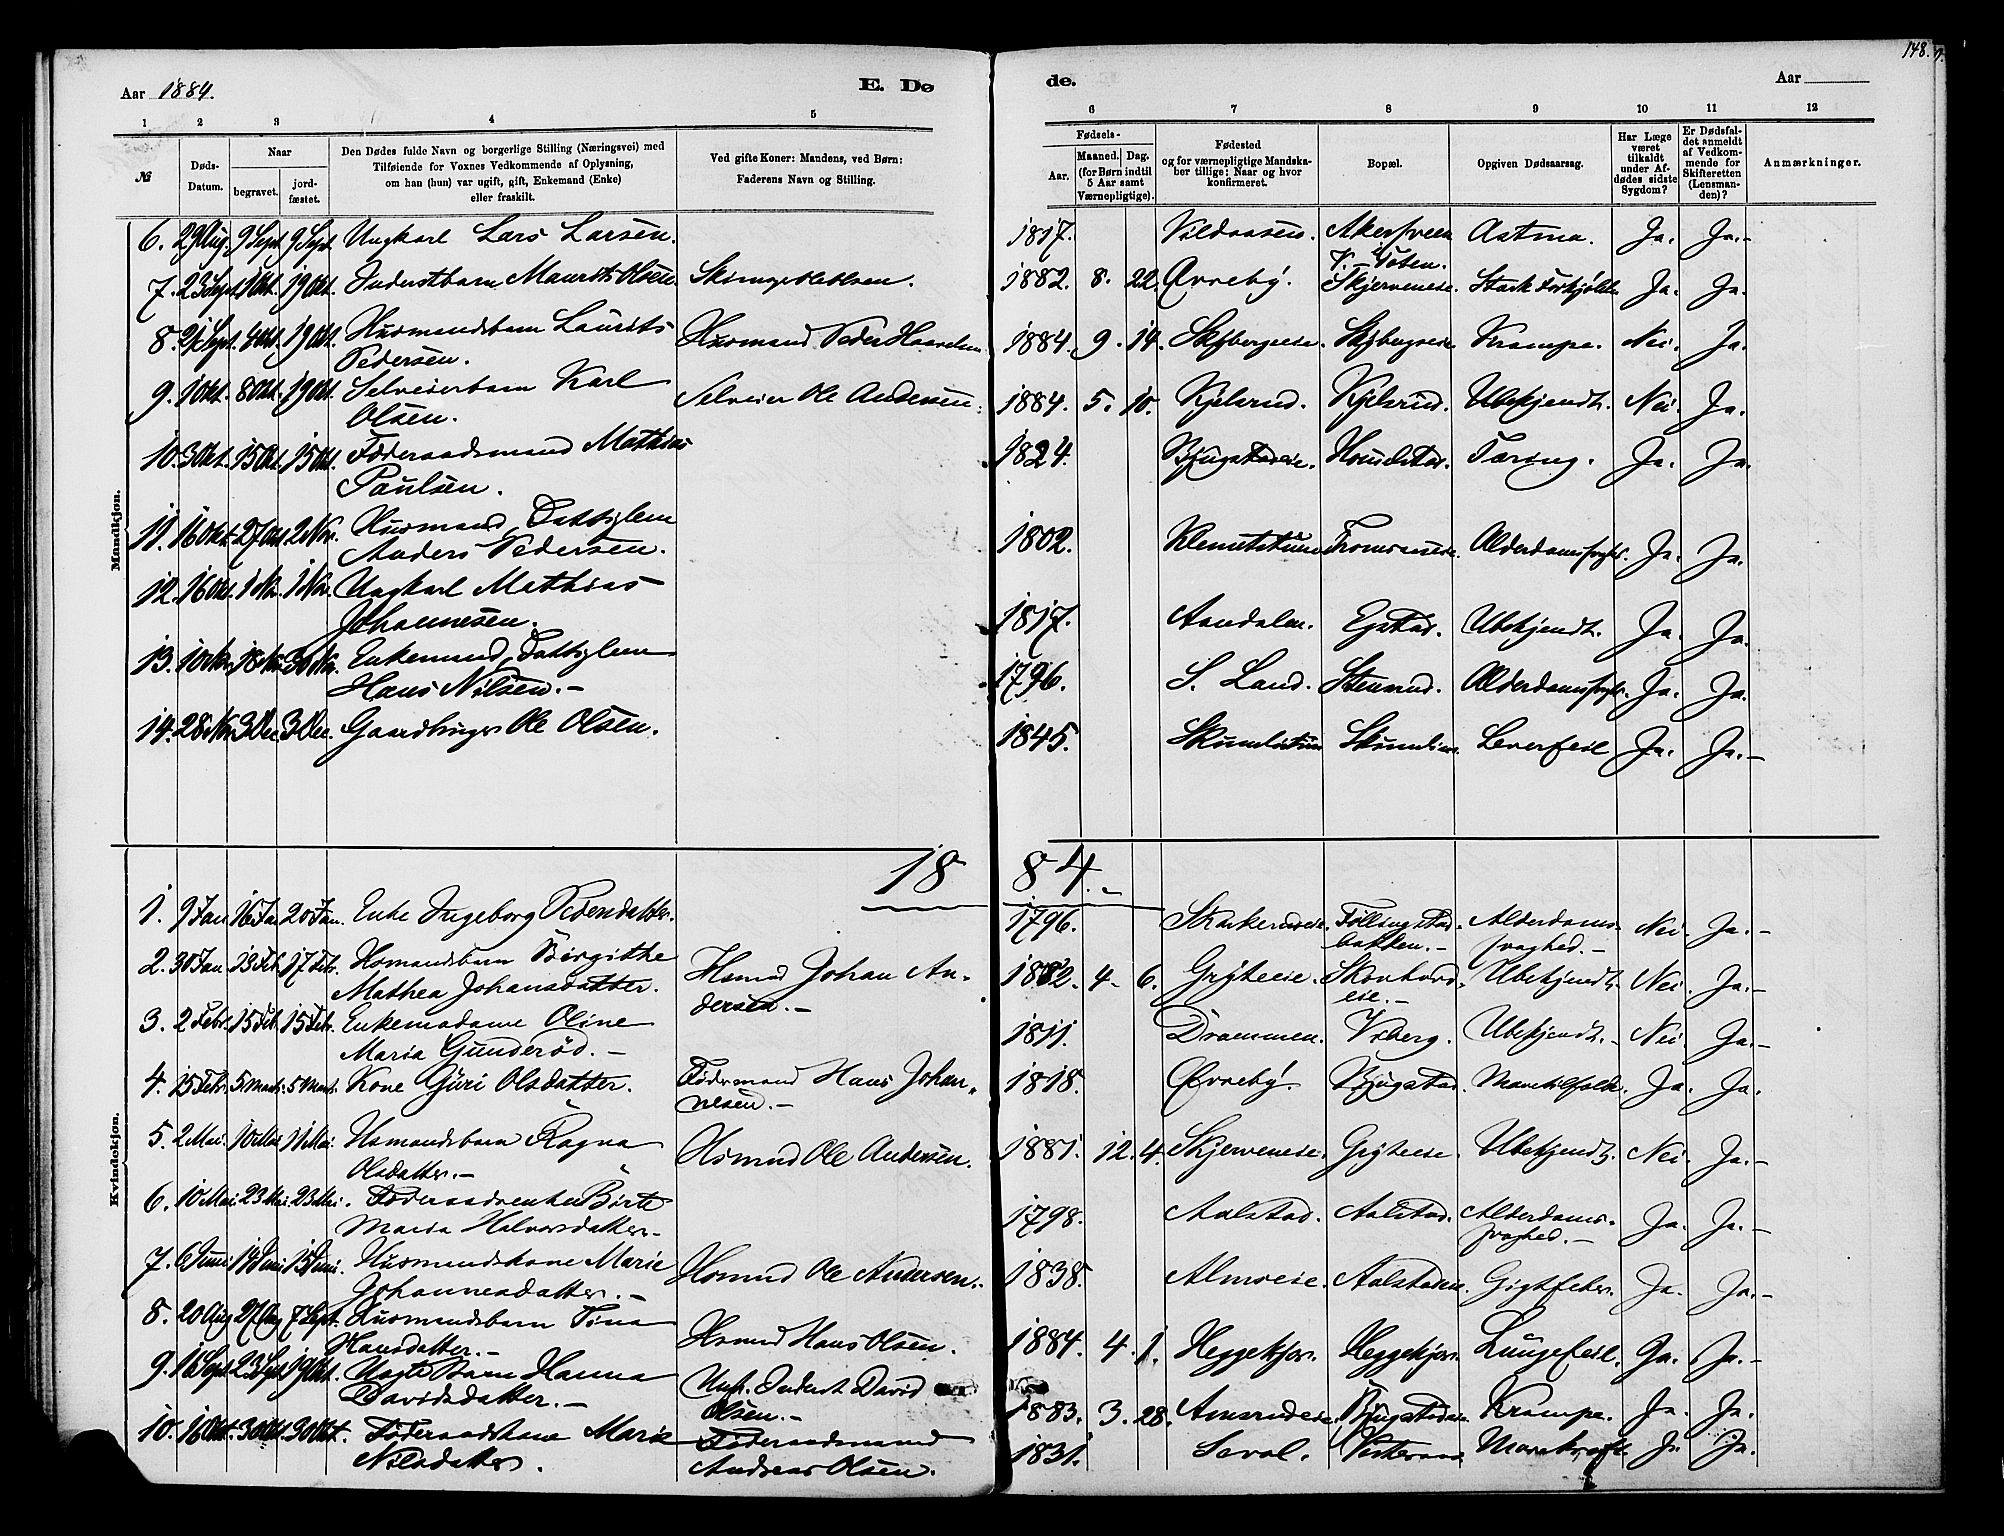 148.
Aar 1884.
E. Dø
de.
Aar
1 2 3 3 4 5
6 7 8 9 10 11 12
№
Døds-Datum.
Naar
begravet.
jordfæstet.
Den Dødes fulde Navn og borgerlige Stilling (Næringsvei) med
Tilføiende for Voxnes Vedkommende af Oplysning,
om han (hun) var ugift, gift, Enkemand (Enke)
eller fraskilt.
Ved gifte Koner: Mandens, ved Børn:
Faderens Navn og Stilling.
Fødsels-
Aar.
Maaned. Dag.
(for Børn indtil
5 Aar samt
Værnepligtige).
Fødested
og for værnepligtige Mandska-
ber tillige: Naar og hvor
konfirmeret.
Bopæl.
Opgiven Dødsaarsag.
Har Læge
været
tilkaldt
under Af-
dødes sidste
Sygdom?
Er Dødsfal-
det anmeldt
af Vedkom-
mende for
Skifteretten
(Lensman-
den)?
Anmærkninger.
Mandkjøn.
6. 29 Aug. 9 Sept. 9 Sept. Ungkarl Lars Larsen. 1817. Vildaasen. V. Toten. Astma. Ja. Ja.-
7. 23 Sept. 1 Okt. 19 Okt. Inderstbarn Maurits Olsen 1882. 8. 22. Øvreby. Skjerveneie. Stærk Forkjølelse Ja. Ja.
8. 21 Sept. 4 Okt. 19 Okt. Husmandsbarn Laurits
Pedersen. Husmand Peder 1884. 9. 14. Krampe. Nei. Ja.
9. 1 Okt. 8 Okt. 19 Okt. Selveierbarn Karl
Olsen. Selveier Ole Andersen. 1884. 5. 10. Kjelsrud. Kjelsrud. Ubekjendt. Nei. Ja.
10. 3 Okt. 15 Okt. 15 Okt. Føderaadsmand Mathias
Paulsen. 1824. Bjugstadeie. Tæring. Ja. Ja.
11. 16 Okt. 27 Okt. 2 Nov. Husmand, Fattiglem
Anders Pedersen. 1802. Alderdomssvagh. Ja. Ja.
12. 16 Okt. 1 Nov. 1 Nov. Ungkarl Mathias
Johannesen. 1817. Aandalen. Egstad. Ubekjendt. Ja. Ja.
13. 10 Nov. 18 Nov. 30 Nov. Enkemand, Fattiglem
Hans Nilsen.- 1796. S. Land. Stensrud. Alderdomssvagh. Ja. Ja.
14. 28 Nov. 3 Dec. 3 Dec. Gaardbruger Ole Olsen. 1845. Leverfeil Ja. Ja.-
1884.-
Kvindekjøn.
1. 9 Jan. 16 Jan. 20 Jan. Enke Ingeborg Pedersdatter. 1796. Alderdoms-
svaghed.- Nei Ja.-
2. 30 Jan. 13 Feb. 17 Feb. Hsmandsbarn Birgithe
Mathea Johansdatter. Hsmnd Johan An-
dersen.- 1882. 4. 6. Grÿteeie. Ubekjendt. Nei. Ja.-
3. 2 Febr. 15 Feb. 15 Feb. Enkemadame Oline
Maria Gunderød.- 1811. Drammen. Viberg. Ubekjendt.- Nei Ja.-
4. 15 Febr. 5 Marts. 5 Marts. Kone Guri Olsdatter. Fødermand Hans Johan-
nesen.- 1818. Øvreby. Bjugstad. Ja. Ja.
5. 2 Mai. 10 Mai 11 Mai. Hsmandsbarn Ragna
Olsdatter.- Hsmnd Ole Andersen. 1881. 12. 4. Skjerveneie. Grÿteeie. Ubekjendt. Nei. Ja.-
6. 10 Mai. 23 Mai. 23 Mai. Føderaadsenke Birte
Maria Halvorsdatter.- 1798. Aalstad. Aalstad. Alderdoms-
svaghed.- Ja. Ja.-
7. 6 Juni 14 Juni 15 Juni. Husmandskone Marie
Johannesdatter.- Hsmnd Ole Andersen.- 1838. Almseie. Aalstadeie. Gigtfeber. Ja. Ja.-
8. 20 Aug 27 Aug 7 Sept. Husmandsbarn Tina
Hansdatter.- Hsmnd Hans Olsen. 1884. 4. 1. Heggekjær. Heggekjær. Lungefeil. Ja. Ja.-
9. 16 Sept. 23 Sept. 19 Okt. Uægte Barn Hanna
Davidsdatter.- Ugift Inderst David
Olsen.- 1883. 3. 28. Amsrudeie. Bjugstadeie. Krampe. Ja. Ja.
10. 16 Okt. 30 Okt. 30 Okt. Føderaadskone Marie
Nilsdatter. Føderaadsmand
Andreas Olsen. 1831. Marekræft. Ja. Ja.